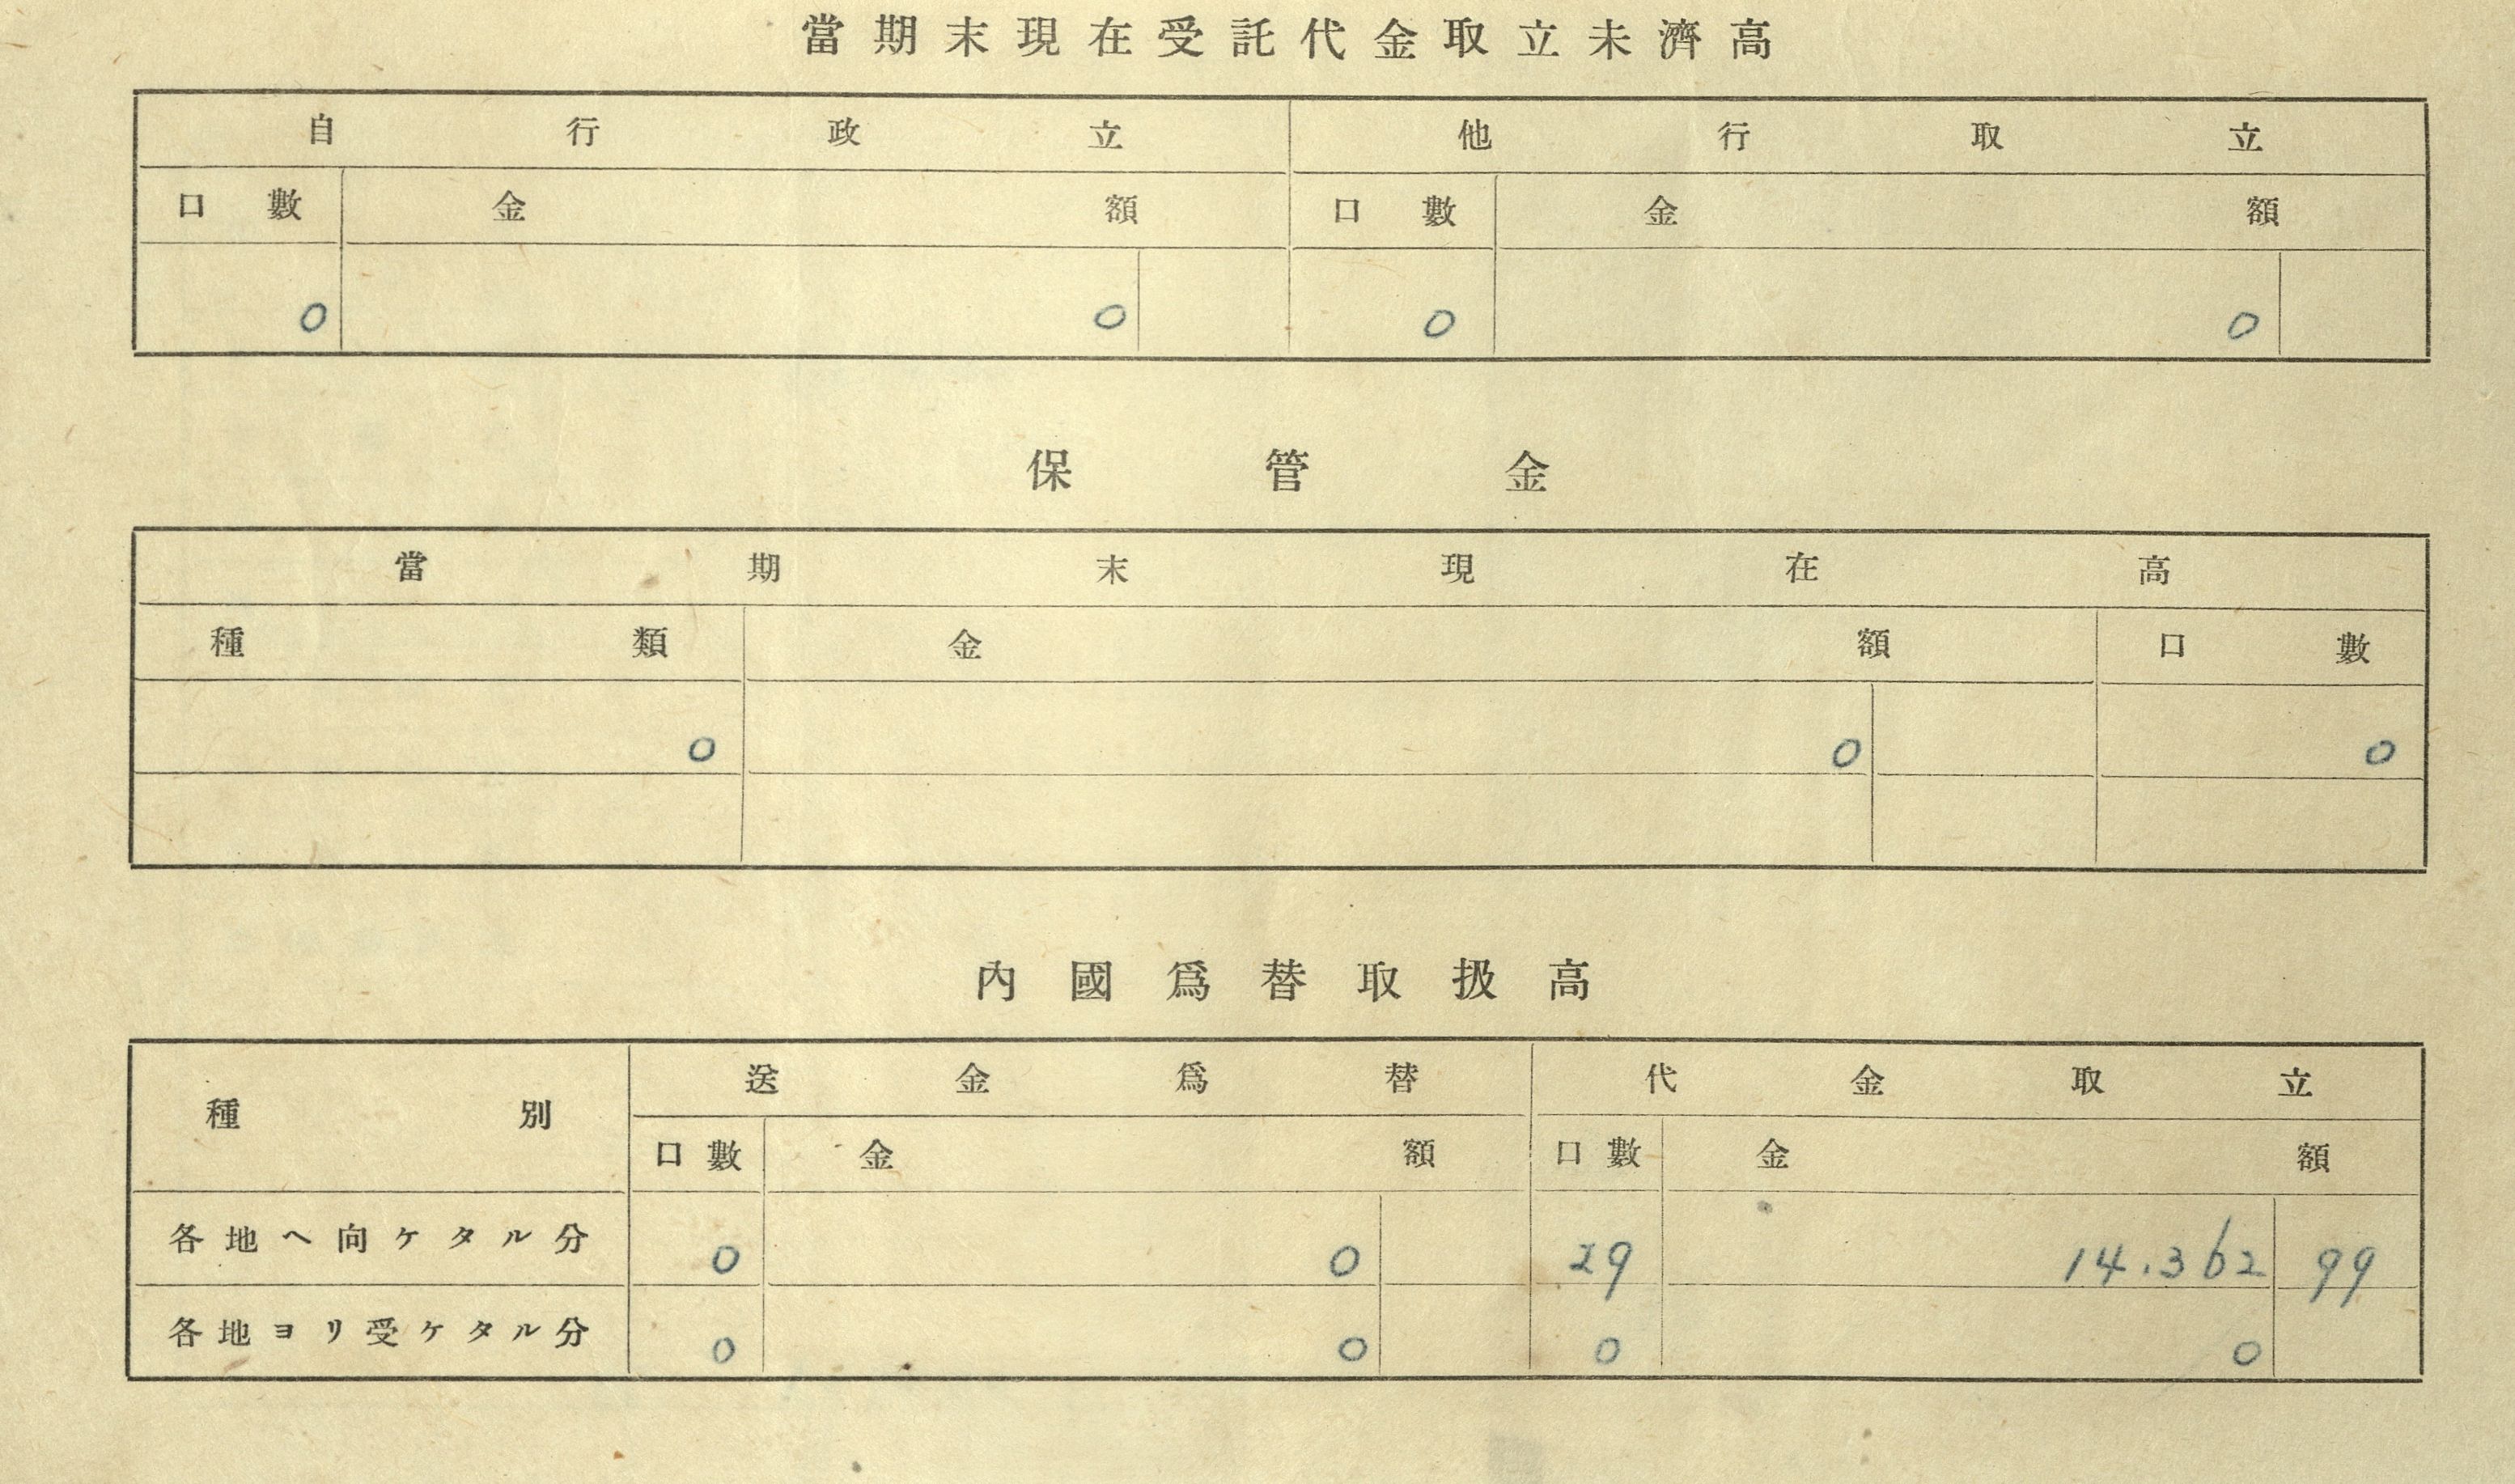 當期末現在受託代金取立未濟高
自行政立 他行取立
口數 金額 口數 金額
0 0 0 0
保管金
當期末現在高
種類 金額 口數
0 0 0
內國爲替取扱高
種別 送金爲替 代金取立
口數 金額 口數 金額
各地ヘ向ケタル分 0 0 29 14.362 99
各地ヨリ受ケタル分 0 0 0 0